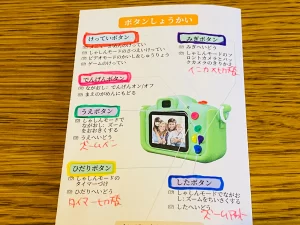 ボタンしょうかい
けっていボタン
しゃしんモードのさつえいけってい
ビデオモードのかいし&しゅうりょう
ゲームのけってい
でんげんボタン
ながおし:でんげんオン/オフ
まえのがめんにもどる
うえボタン
しゃしんモードで
ながおし:ズームを
おおきくする
うえへいどう
ズームイン
ひだりボタン
しゃしんモードの
タイマーつけ
ひだりへいどう
タイマー切替
みぎボタン
みぎへいどう
しゃしんモードのフ
ロントカメラとバッ
クカメラのきりかえ
インカメ切替
したボタン
しゃしんモードでなが
おし:ズームをちいさくする
したへいどう
ズームアウト